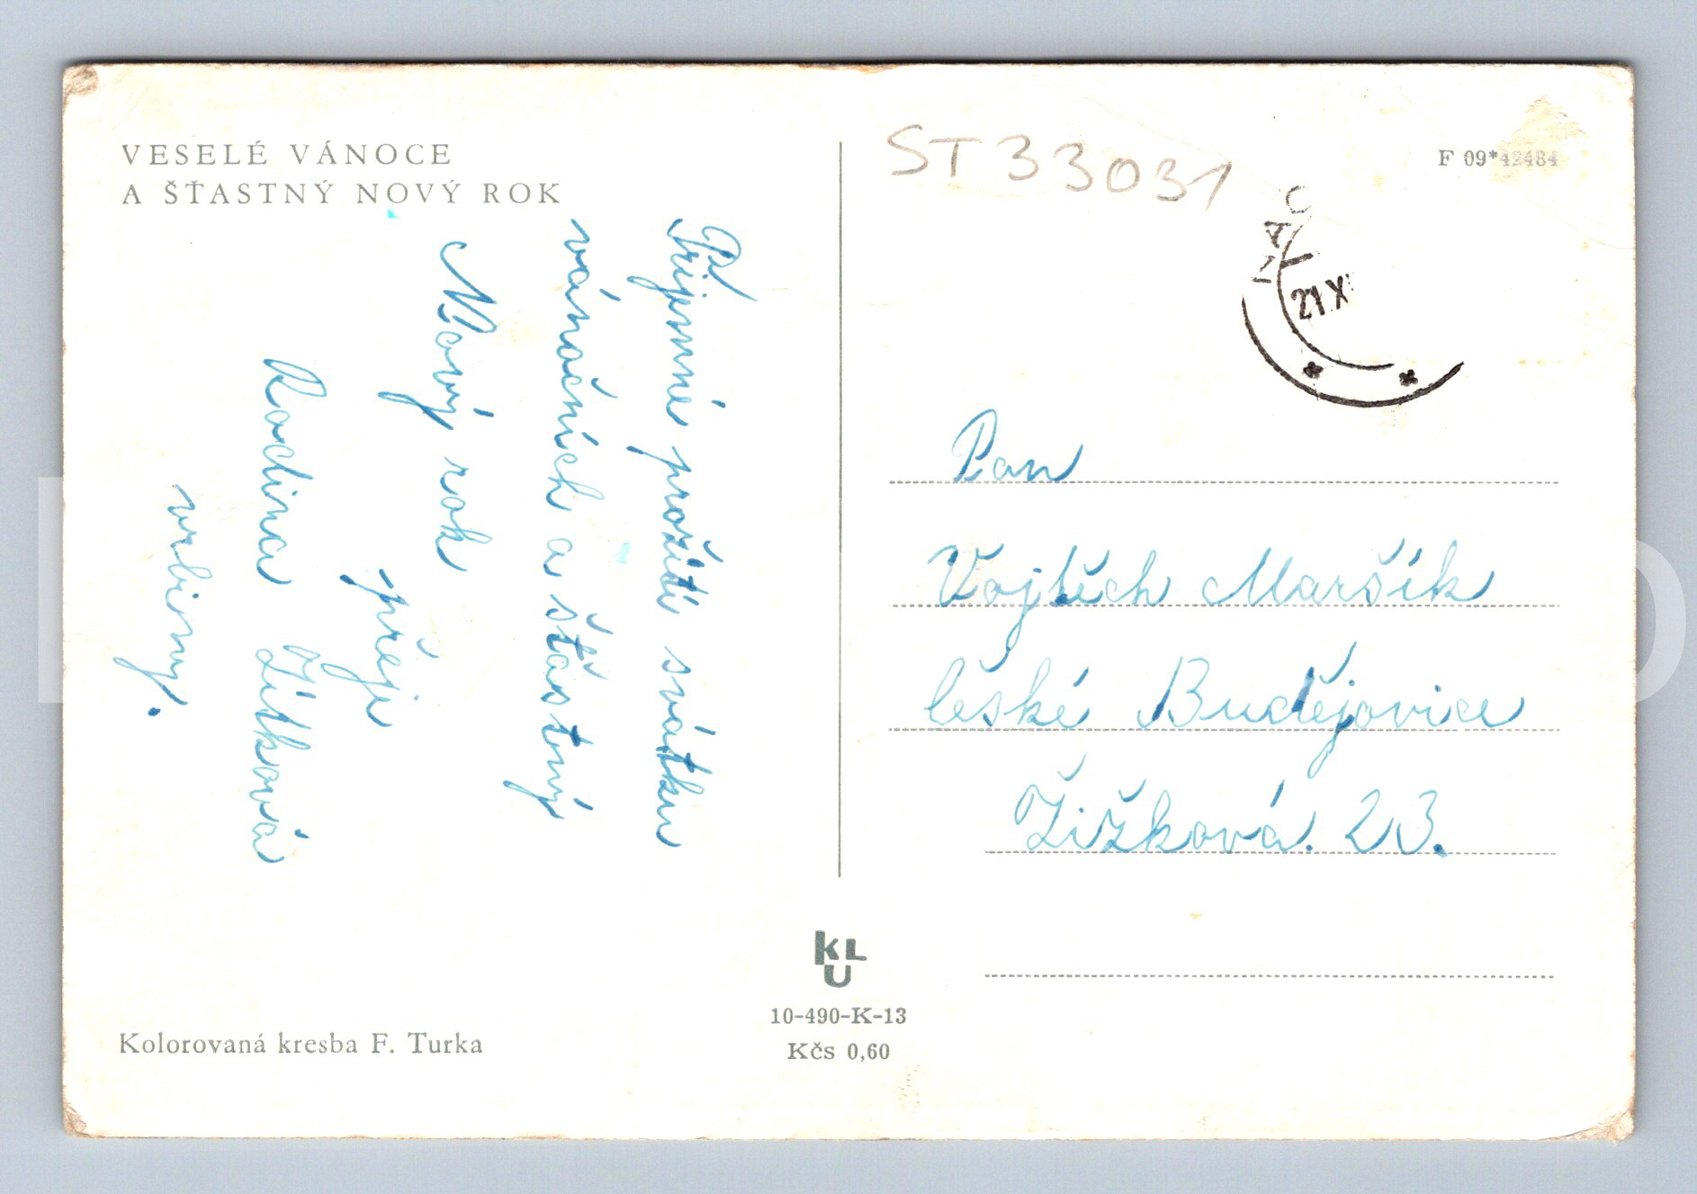 VESELÉ VÁNOCE
A ŠŤASTNÝ NOVÝ ROK
Příjemné prožití svátku
vánočních a šťastný
Nový rok
přeji
Rodina Žitková
vrbiny.
Kolorovaná kresba F. Turka
KLU
10-490-K-13
Kčs 0,60
ST33031
F 09*42484
21.X
Pan
Vojtěch Maršík
České Budějovice
Žižková. 23.